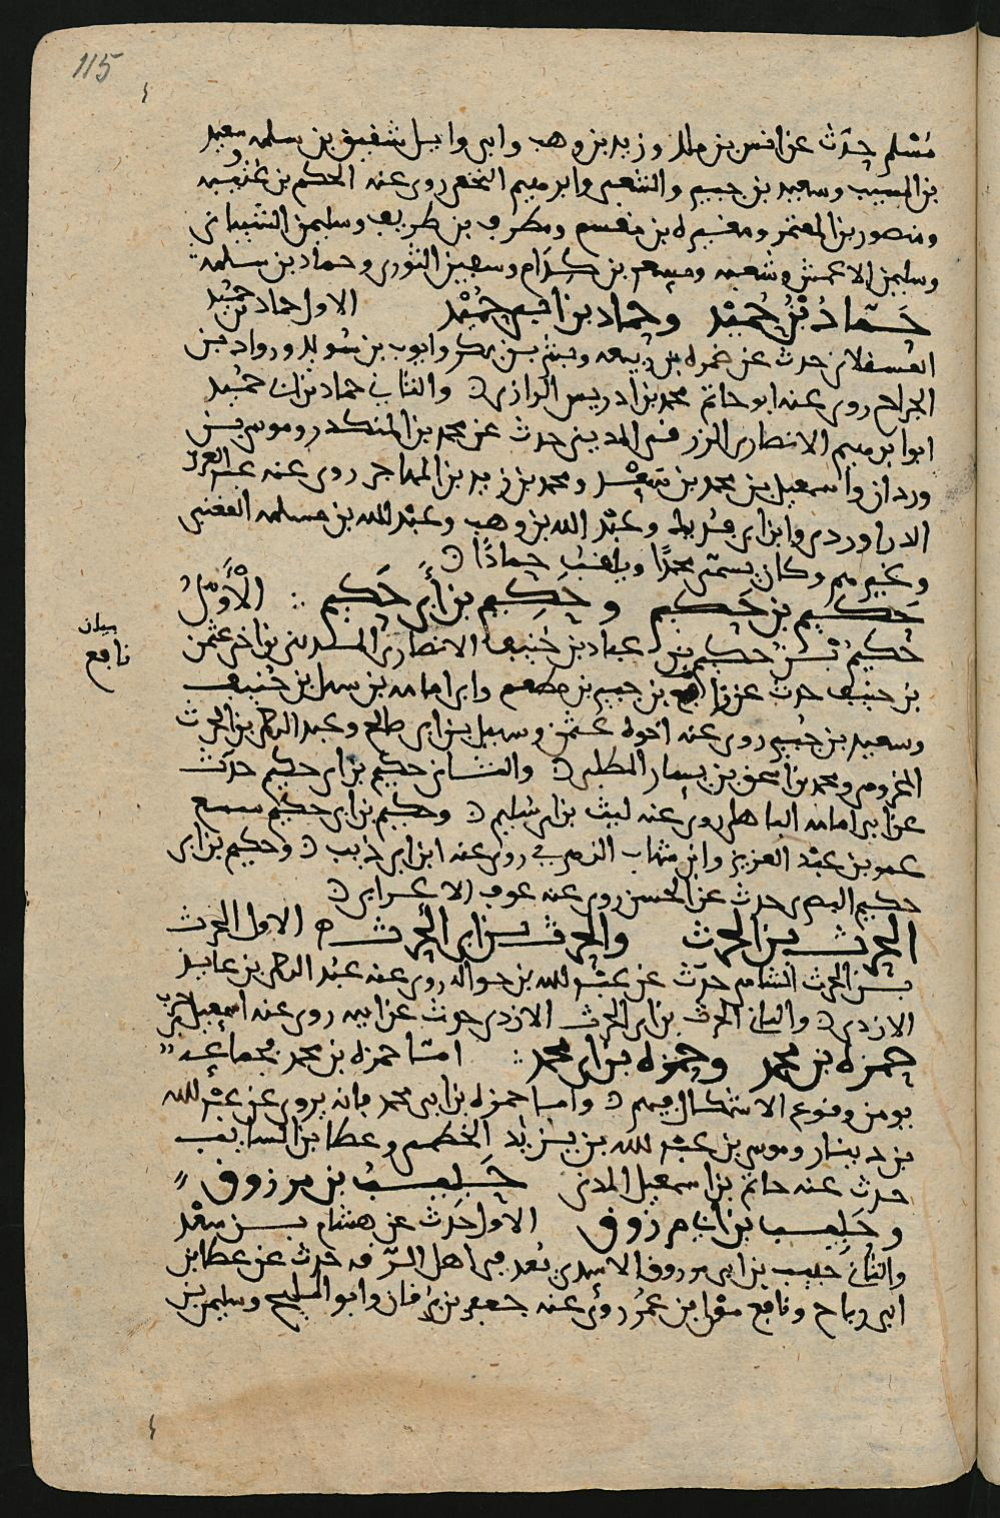 115
مُسْلم حدّث عن انس بن ملك وزيد بن وهب وابى وايل شقيق بن سلمه وسعيد
بن المسيب وسعيد بن جبير والشعبى وابرهيم النخعى روى عنه الحكم بن عُتَيْبه
ومنصور بن المعتمر ومغيره بن مقسم ومطرف بن طريف وسليمن الشيبانى
وسليمن الاعمش وشعبه ومِسْعر بن كِدَام وسفين الثورى وحماد بن سلمه
حَمّادُ بْنُ حُمَيْد وحماد بن ابى حُمَيْد الاول حماد بن حُمَيْد
العسقلانى حدث عن ضمره بن ربيعه وبشر بن بكر وايوب بن سُويد ورواد بن
الجراح روى عنه ابو حاتم محمد بن ادريس الرازى ۞ والثانى حماد بن ابى حُمَيْد
ابو ابرهيم الانصارى الزرقى المدينى حدث عن محمد بن المنكدر وموسى بن
وردان واسمعيل بن محمد بن سَعْد ومحمد بن زيد بن المهاجر روى عنه عبد العزيز
الدراوردى وابن ابى فُدَيك وعَبْد الله بن وهب وعَبْد الله بن مسلمه القعنبى
وغيرهم وكان يسمّى محمدًا ويلقبُ حمادًا ۞
حَكيم بن حَكيم وحَكِيم بن أَبى حَكيم الْأَوّلُ
حُكيمُ بنُ حكيم بن عباد بن حُنيف الانصارى المدينى بن اخى عثمن
بن حنيف حدث عن نافع بن جبير بن مطعم وابى امامه بن سهل بن حُنيف
بيان
نافع
وسعيد بن جُبير روى عنه اخوه عثمن وسهيل بن ابى صالح وعبد الرحمن بن الحرث
المخزومى ومحمد بن اسحق بن يسار المطلبى ۞ والثانى حكيم بن ابى حكيم حدّث
عن ابى امامه الباهلى روى عنه ليث بن ابى سُليم ۞ وحكيم بن ابى حكيم سمع
عمر بن عبْد العزيز وابن شهاب الزهرى روى عنه ابن ابى ذيب ۞ وحكيم بن ابى
حكيم البصرى حدث عن الحسن روى عنه عوف الاعرابى ۞
الحرث بن الحرث والحرث بن ابى الحرث ۞ الاول الحرث
بن الحرث الشامى حدّث عن عبْد الله بن حواله روى عنه عبْد الرحمن بن عايذ
الازدى ۞ والثانى الحرث بن ابى الحرث الازدى حدث عن ابيه روى عنه اسمعيل بن
حمزه بن محمد وحمزه بن ابى محمد امّا حمزه بن محمد فجماعه
يومن وقوع الاشكال فيهم ۞ واما حمزه بن ابى محمد فانه يروى عن عبْد الله
بن دينار وموسى بن عبْد الله بن يزيد الخطمى وعطا بن السايب
حدث عنه حاتم بن اسمعيل المدنى حَبيبُ بن مرزوق
وحَبيب بن أبى مرزوق الاول حَدث عن هشام بن سعْد
والثانى حبيب بن ابى مرزوق الاسدى يُعد فى اهل الرّقه حدث عن عطا بن
ابى رباح ونافع مولى بن عمرُ روى عنه جعفر بن بُرقان وابو المليح وسليمن بن